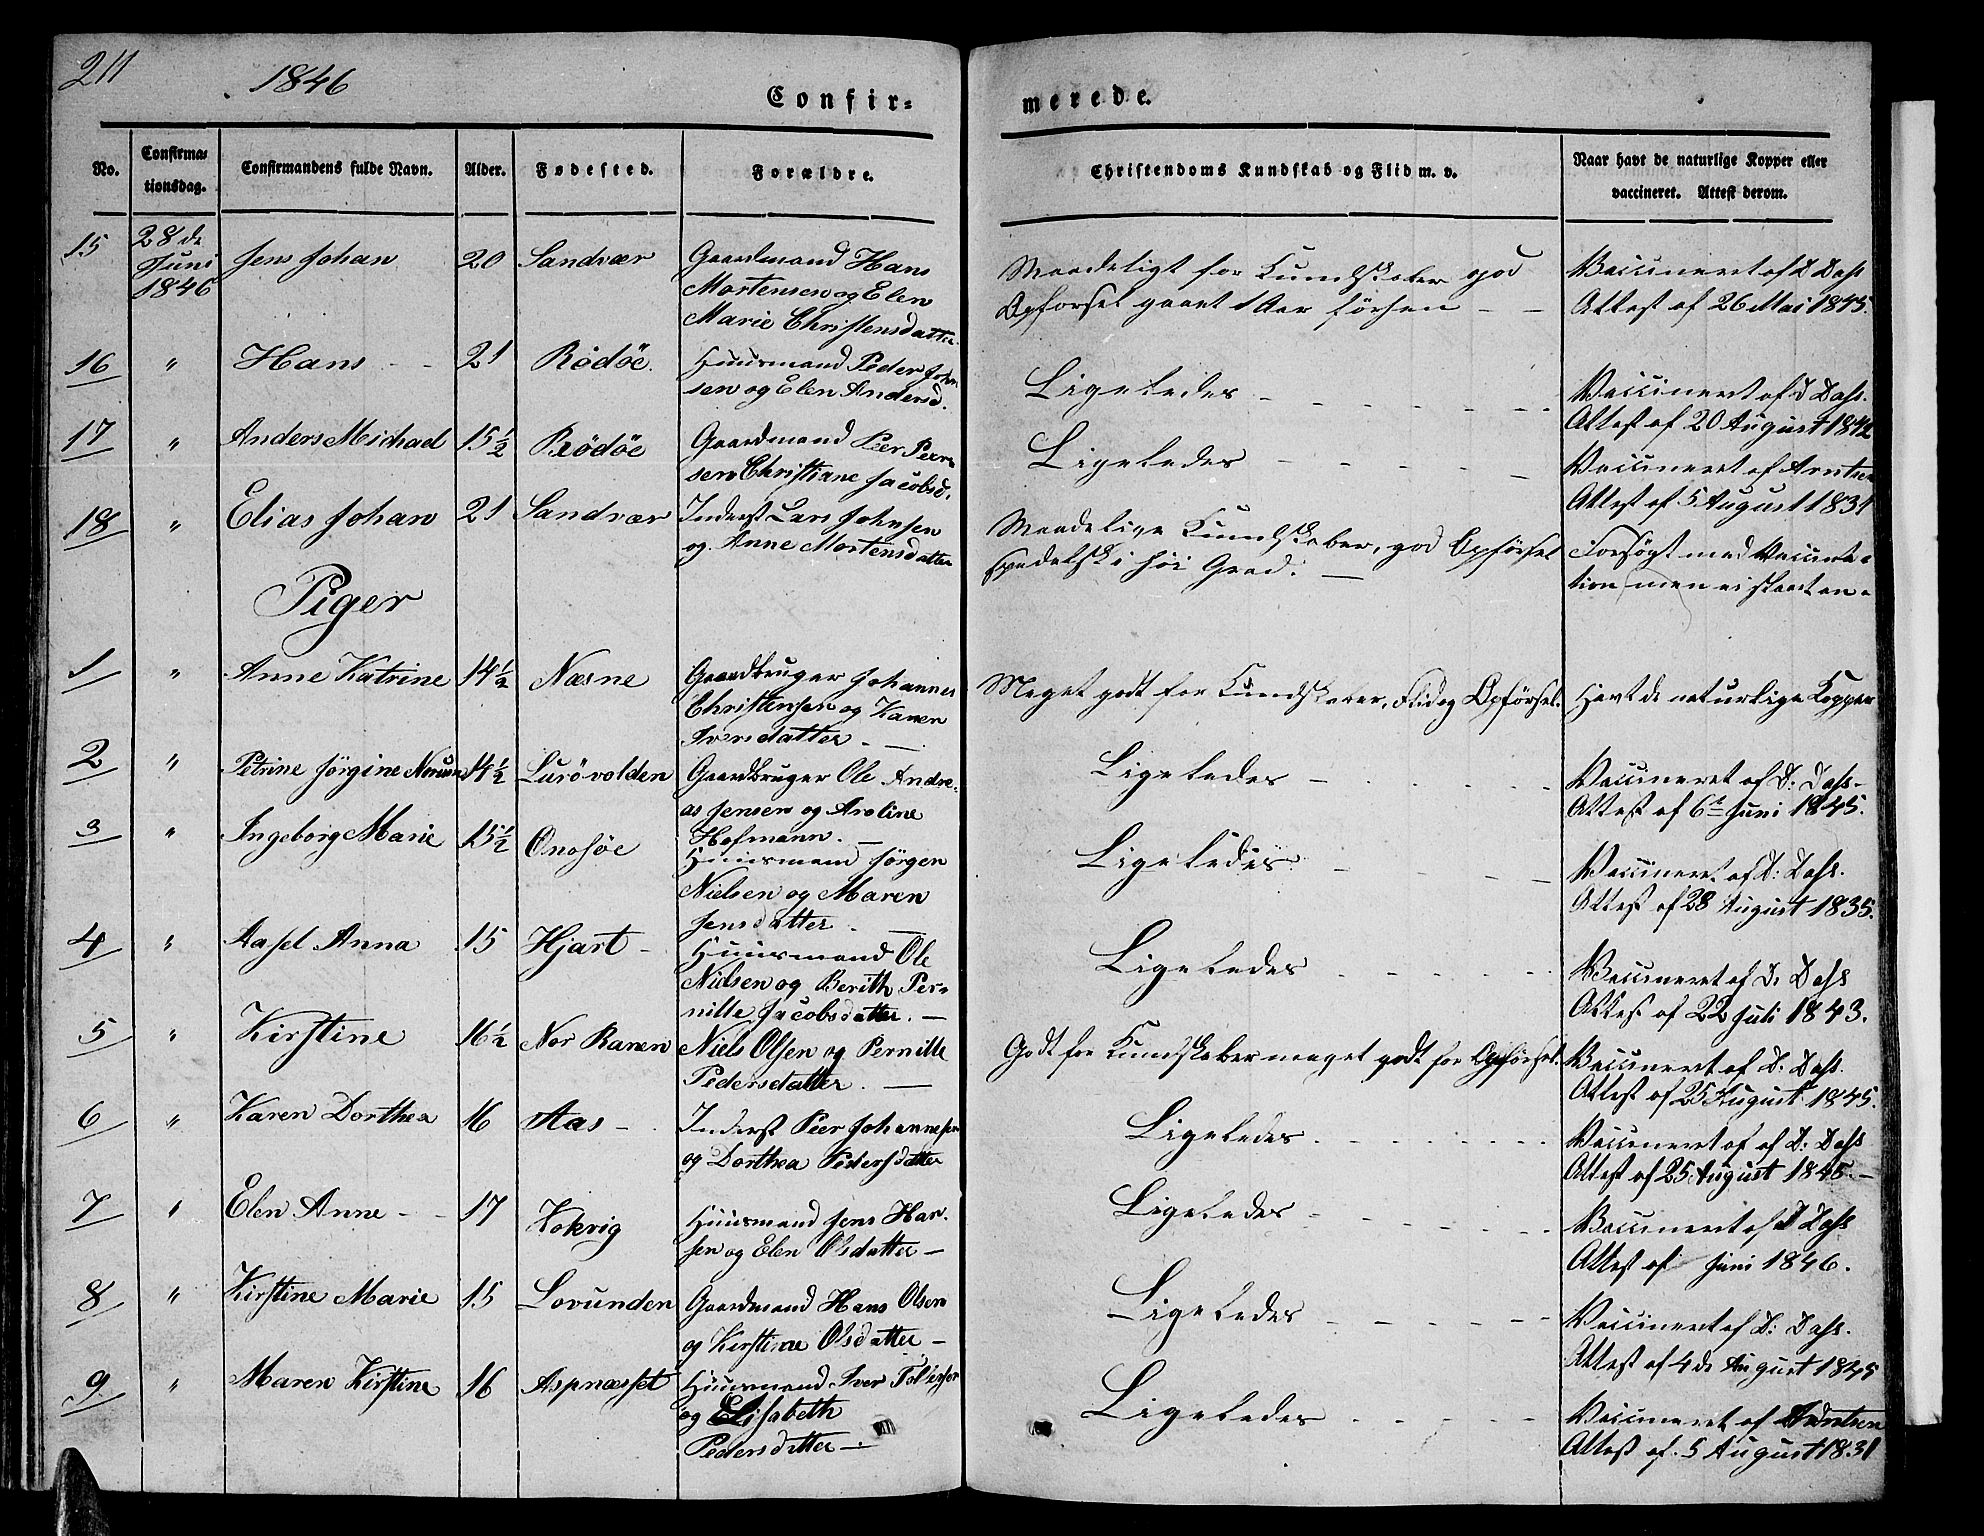 211
1846
Confir-
merede.
No.
Confirma-
tionsdag.
Confirmandens fulde Navn.
Alder.
Fødested.
Forældre.
Christendoms Kundskab og Flid m. v.
Naar havt de naturlige Kopper eller
vaccineret. Attest derom.
15
28 de
Juni
1846
Jens Johan
20
Sandvær
Gaardmand Hans
Mortensen og Elen
Marie Christensdatter
Maadeligt for Kundskaber god
Opførsel gaaet 1 Aar førhen — —
Vaccineret af D Dahl
Attest af 26 Mai 1845.
16
"
Hans
21
Rödöe.
Huusmand Peder John
sen og Elen Andersd.
Ligeledes
Vaccineret af D Dahl.
Attest af 20 August 1842
17
"
Anders Michael
15½
Rödöe
Gaardmand Peer Peer-
sen Christiane Jacobsd.
Ligeledes
Vaccineret af Arntsen
Attest af 5 August 1831
18
"
Elias Johan
21
Sandvær
Inderst Lars Johnsen
og Anne Mortensdatter
Maadelige Kundskaber, god Opførsel
spedalsk i høi Grad. —
Forsøgt med Vaccina-
tion men ei slaaet an.
Piger
1
"
Anne Katrine
14½
Næsne
Gaardbruger Johannes
Christensen og Karen
Iversdatter. —
Meget godt for Kundskaber, Flid og Opførsel.
Havt de naturlige Kopper
2
"
Petrine Jörgine Norum
14½
Lurövolden
Gaardbruger Ole Andre-
as Jensen og Aroline
Hofmann. —
Ligeledes
Vaccineret af D: Dahl.
Attest af 6te Juni 1845.
3
"
Ingeborg Marie
15½
Onosöe
Huusmand Jörgen
Nielsen og Maren
Jensdatter. —
Ligeledes
Vaccineret af D: Dahl.
Attest af 28 August 1835.
4
"
Aasel Anna
15
Hjart
Huusmand Ole
Nielsen og Berith Per-
nille Jacobsdatter. —
Ligeledes
Vaccineret af D: Dahl
Attest af 22 Juli 1843.
5
"
Kirstine
16½
Nor Ranen
Niels Olsen og Pernille
Pedersdatter. —
Godt for Kundskaber meget godt for Opførsel.
Vaccineret af D: Dahl.
Attest af 25 August 1845.
6
"
Karen Dorthea
16
Aas
Inderst Peer Johannesen
og Dorthea Pedersdatter
Ligeledes
Vaccineret af af D: Dahl
Attest af 25 August 1845. —
7
"
Elen Anne
17
Kokvig
Huusmand Jens Han-
sen og Elen Olsdatter —
Ligeledes
Vaccineret af D Dahl
Attest af Juni 1846.
8
"
Kirstine Marie
15
Lovunden
Gaardmand Hans Olsen
og Kirstine Olsdatter —
Ligeledes
Vaccineret af D: Dahl.
Attest af 4 de August 1845
9
"
Maren Kirstine
16
Aspnæsset
Huusmand Iver
og Elisabeth
Pedersdatter —
Ligeledes
Vaccineret af Arntsen
Attest af 5 August 1831